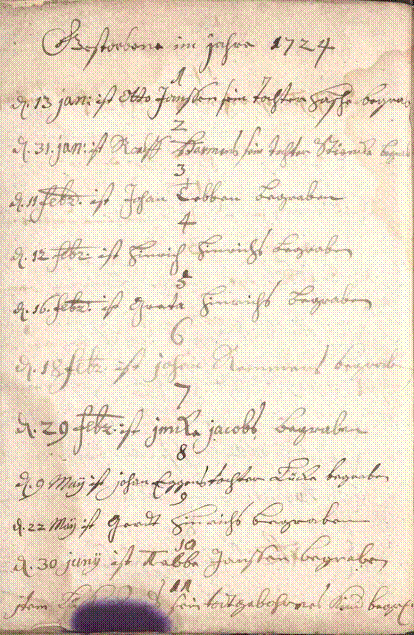 Gestorbene im jahre 1724
1
d. 13 jan: ist Otto Janssen sein tochter begra
2
d. 31. jan: ist Harmens sein tochter
3
d. 11 febr. ist Johan Tebben begraben
4
d. 12 febr. ist Hinrich Hinrichs begraben
5
d. 16. febr. ist Greta Hinrichs begraben
6
d. 18 febr ist johan Remmers begraben
7
d. 29 febr. ist jacobs begraben
8
d. 9 Maÿ ist johan Eggers tochter begraben
9
d. 22 Maÿ ist Gerdt Hinrichs begraben
10
d. 30 junÿ ist Tabbe Janssen begraben
11
item sein todtgebohrnes Kind